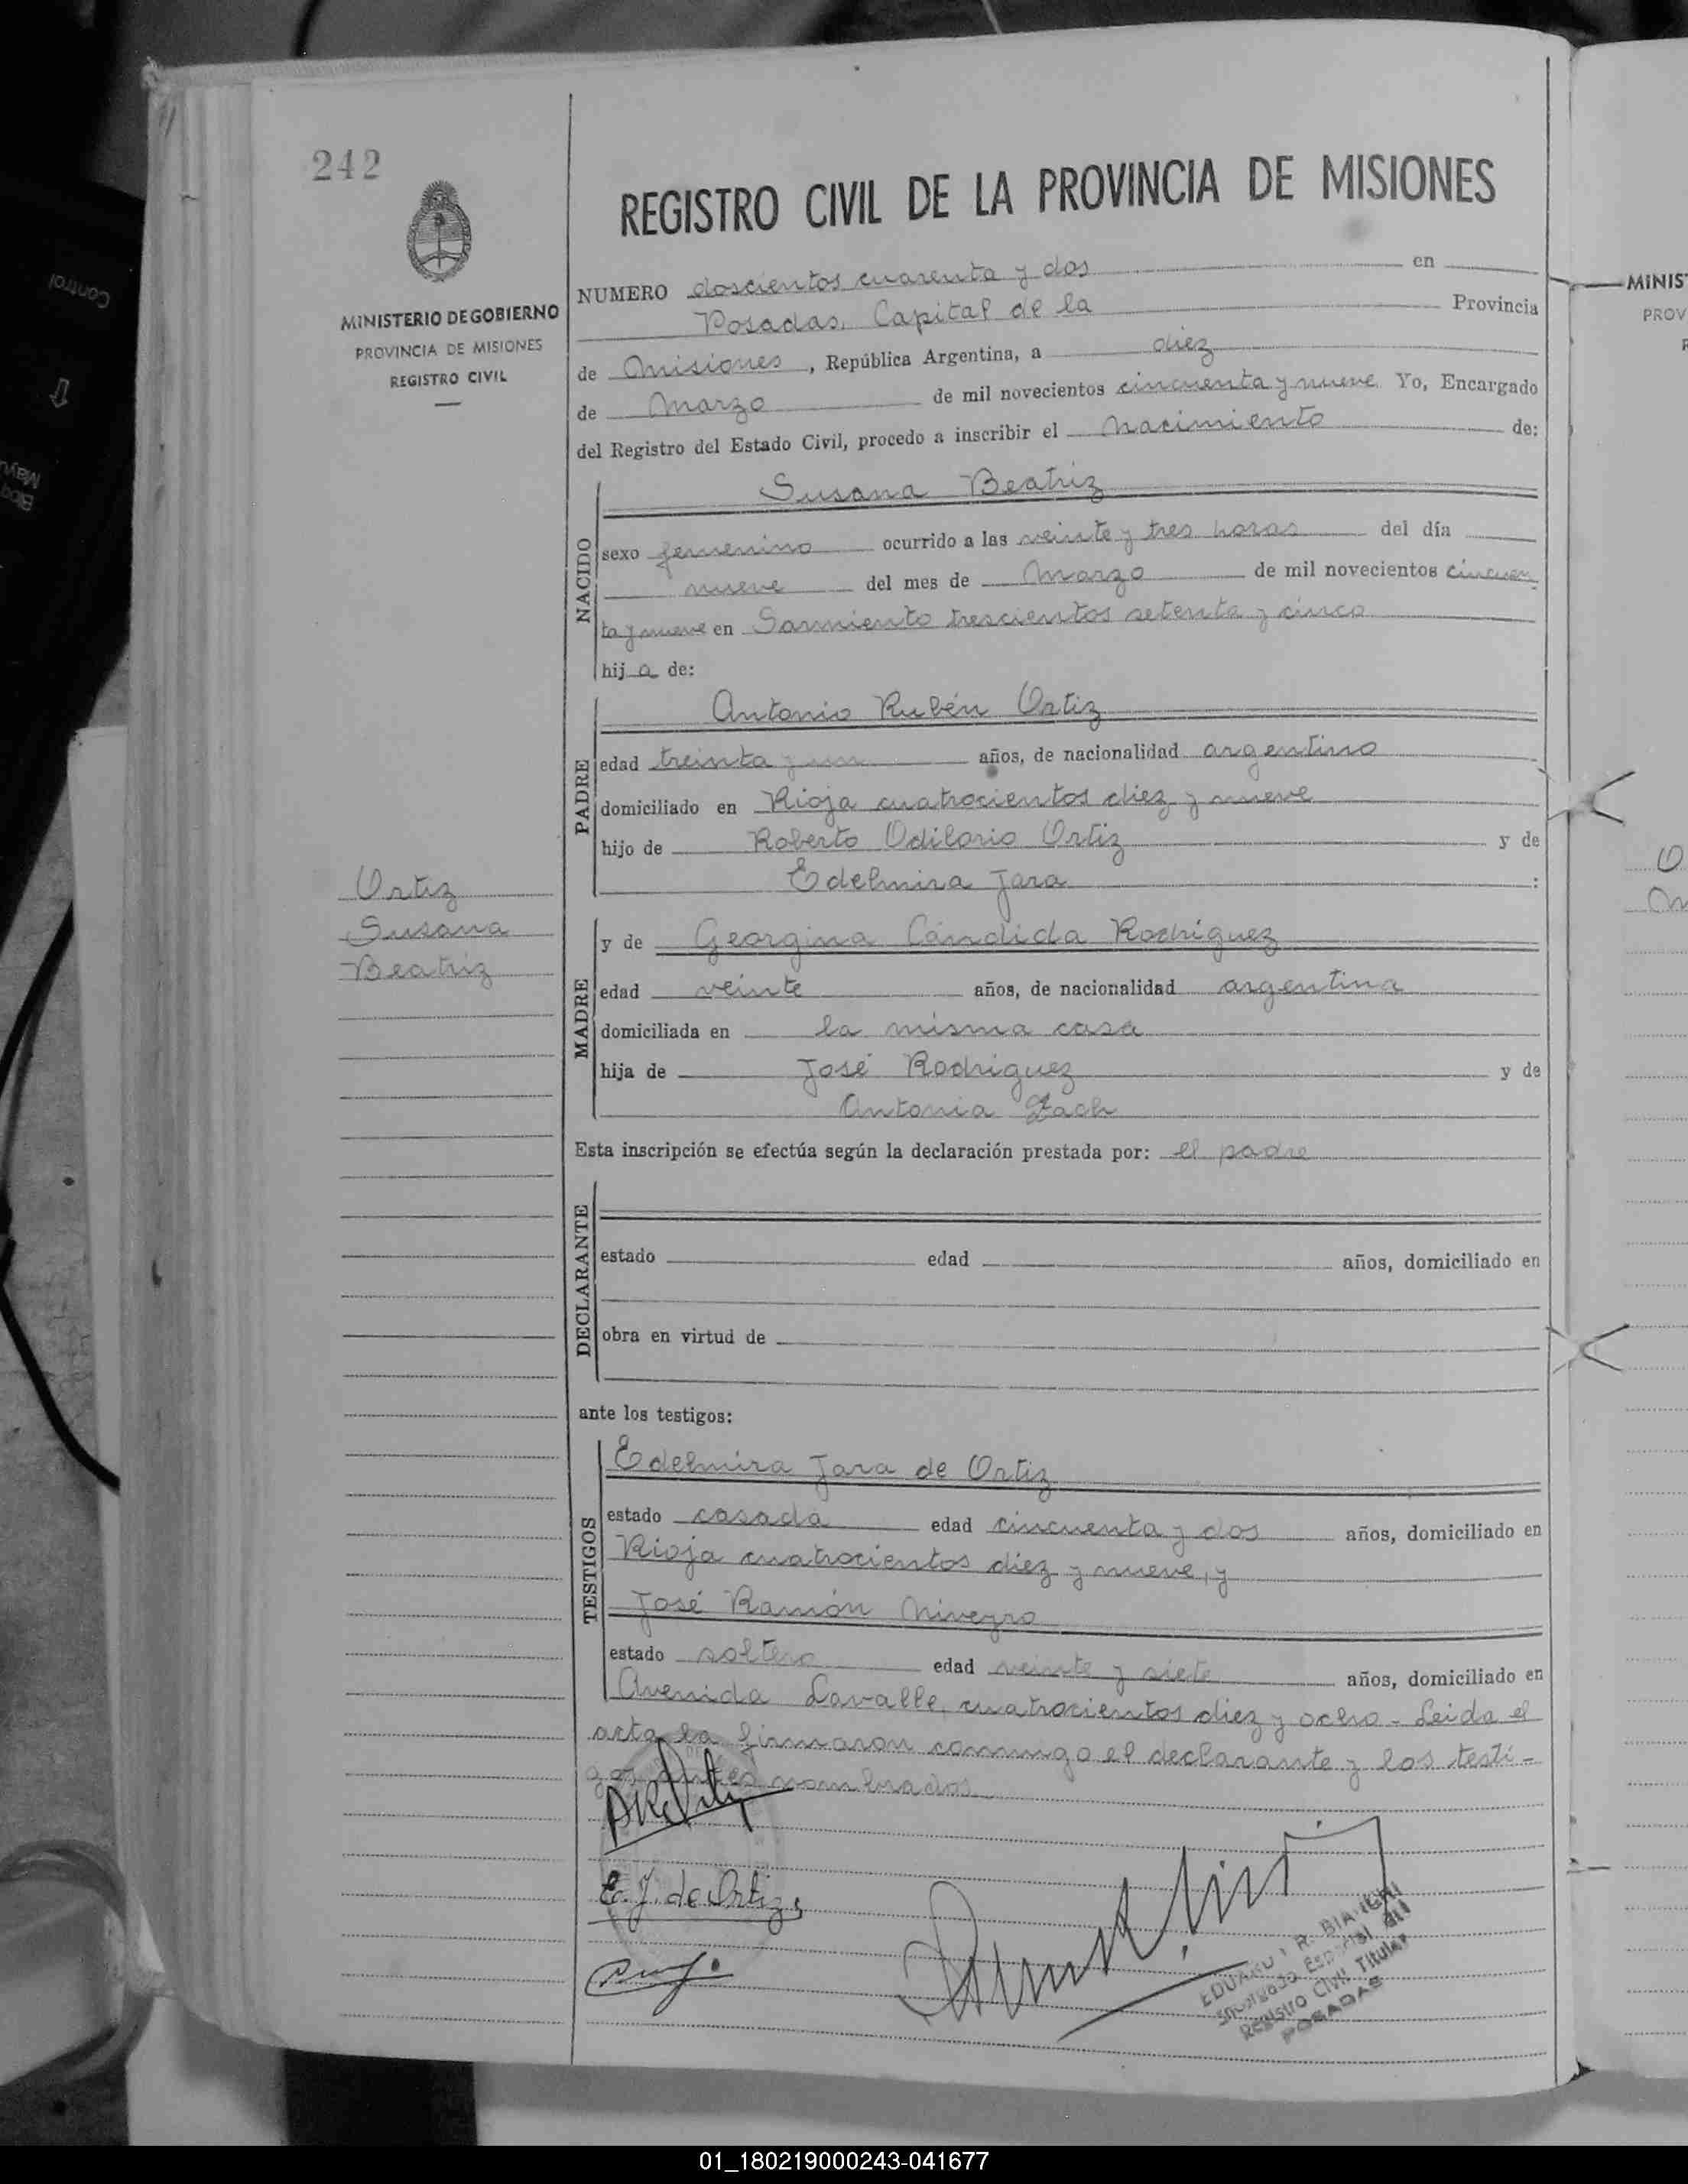 242
REGISTRO CIVIL DE LA PROVINCIA DE MISIONES
MINISTERIO DE GOBIERNO
PROVINCIA DE MISIONES
REGISTRO CIVIL
NUMERO doscientos cuarenta y dos en
Posadas, Capital de la Provincia
de Misiones, República Argentina, a diez
de Marzo de mil novecientos cincuenta y nueve Yo, Encargado
del Registro del Estado Civil, procedo a inscribir el Nacimiento de:
NACIDO
Susana Beatriz
sexo femenino ocurrido a las veinte y tres horas del día
nueve del mes de Marzo de mil novecientos cincuen
ta y nueve en Sarmiento trescientos setenta y cinco
hija de:
PADRE
Antonio Rubén Ortiz
edad treinta y un años, de nacionalidad argentino
domiciliado en Rioja cuatrocientos diez y nueve
hijo de Roberto Odilorio Ortiz y de
Edelmira Jara :
Ortiz
Susana
Beatriz
MADRE
y de Georgina Cándida Rodriguez
edad veinte años, de nacionalidad argentina
domiciliada en la misma casa
hija de José Rodriguez y de
Antonia
Esta inscripción se efectúa según la declaración prestada por: el padre
DECLARANTE
estado edad años, domiciliado en
obra en virtud de
ante los testigos:
TESTIGOS
Edelmira Jara de Ortiz
estado casada edad cincuenta y dos años, domiciliado en
Rioja cuatrocientos diez y nueve, y
José Ramón Niveyro
estado soltero edad veinte y siete años, domiciliado en
Avenida Lavalle, cuatrocientos diez y ocho - Leida el
acta la firmaron conmigo el declarante y los testi-
gos antes nombrados
E. J. de Ortiz
EDUARDO R. BIANCHI
Encargado Especial del
Registro Civil Titular
POSADAS
Control
MINIS
PROV
01_180219000243-041677